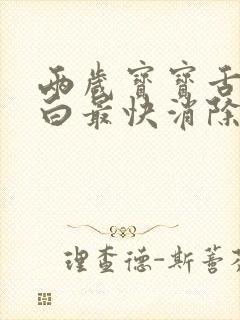 兩歲寶寶舌
白最快消除
理查德-斯蓄